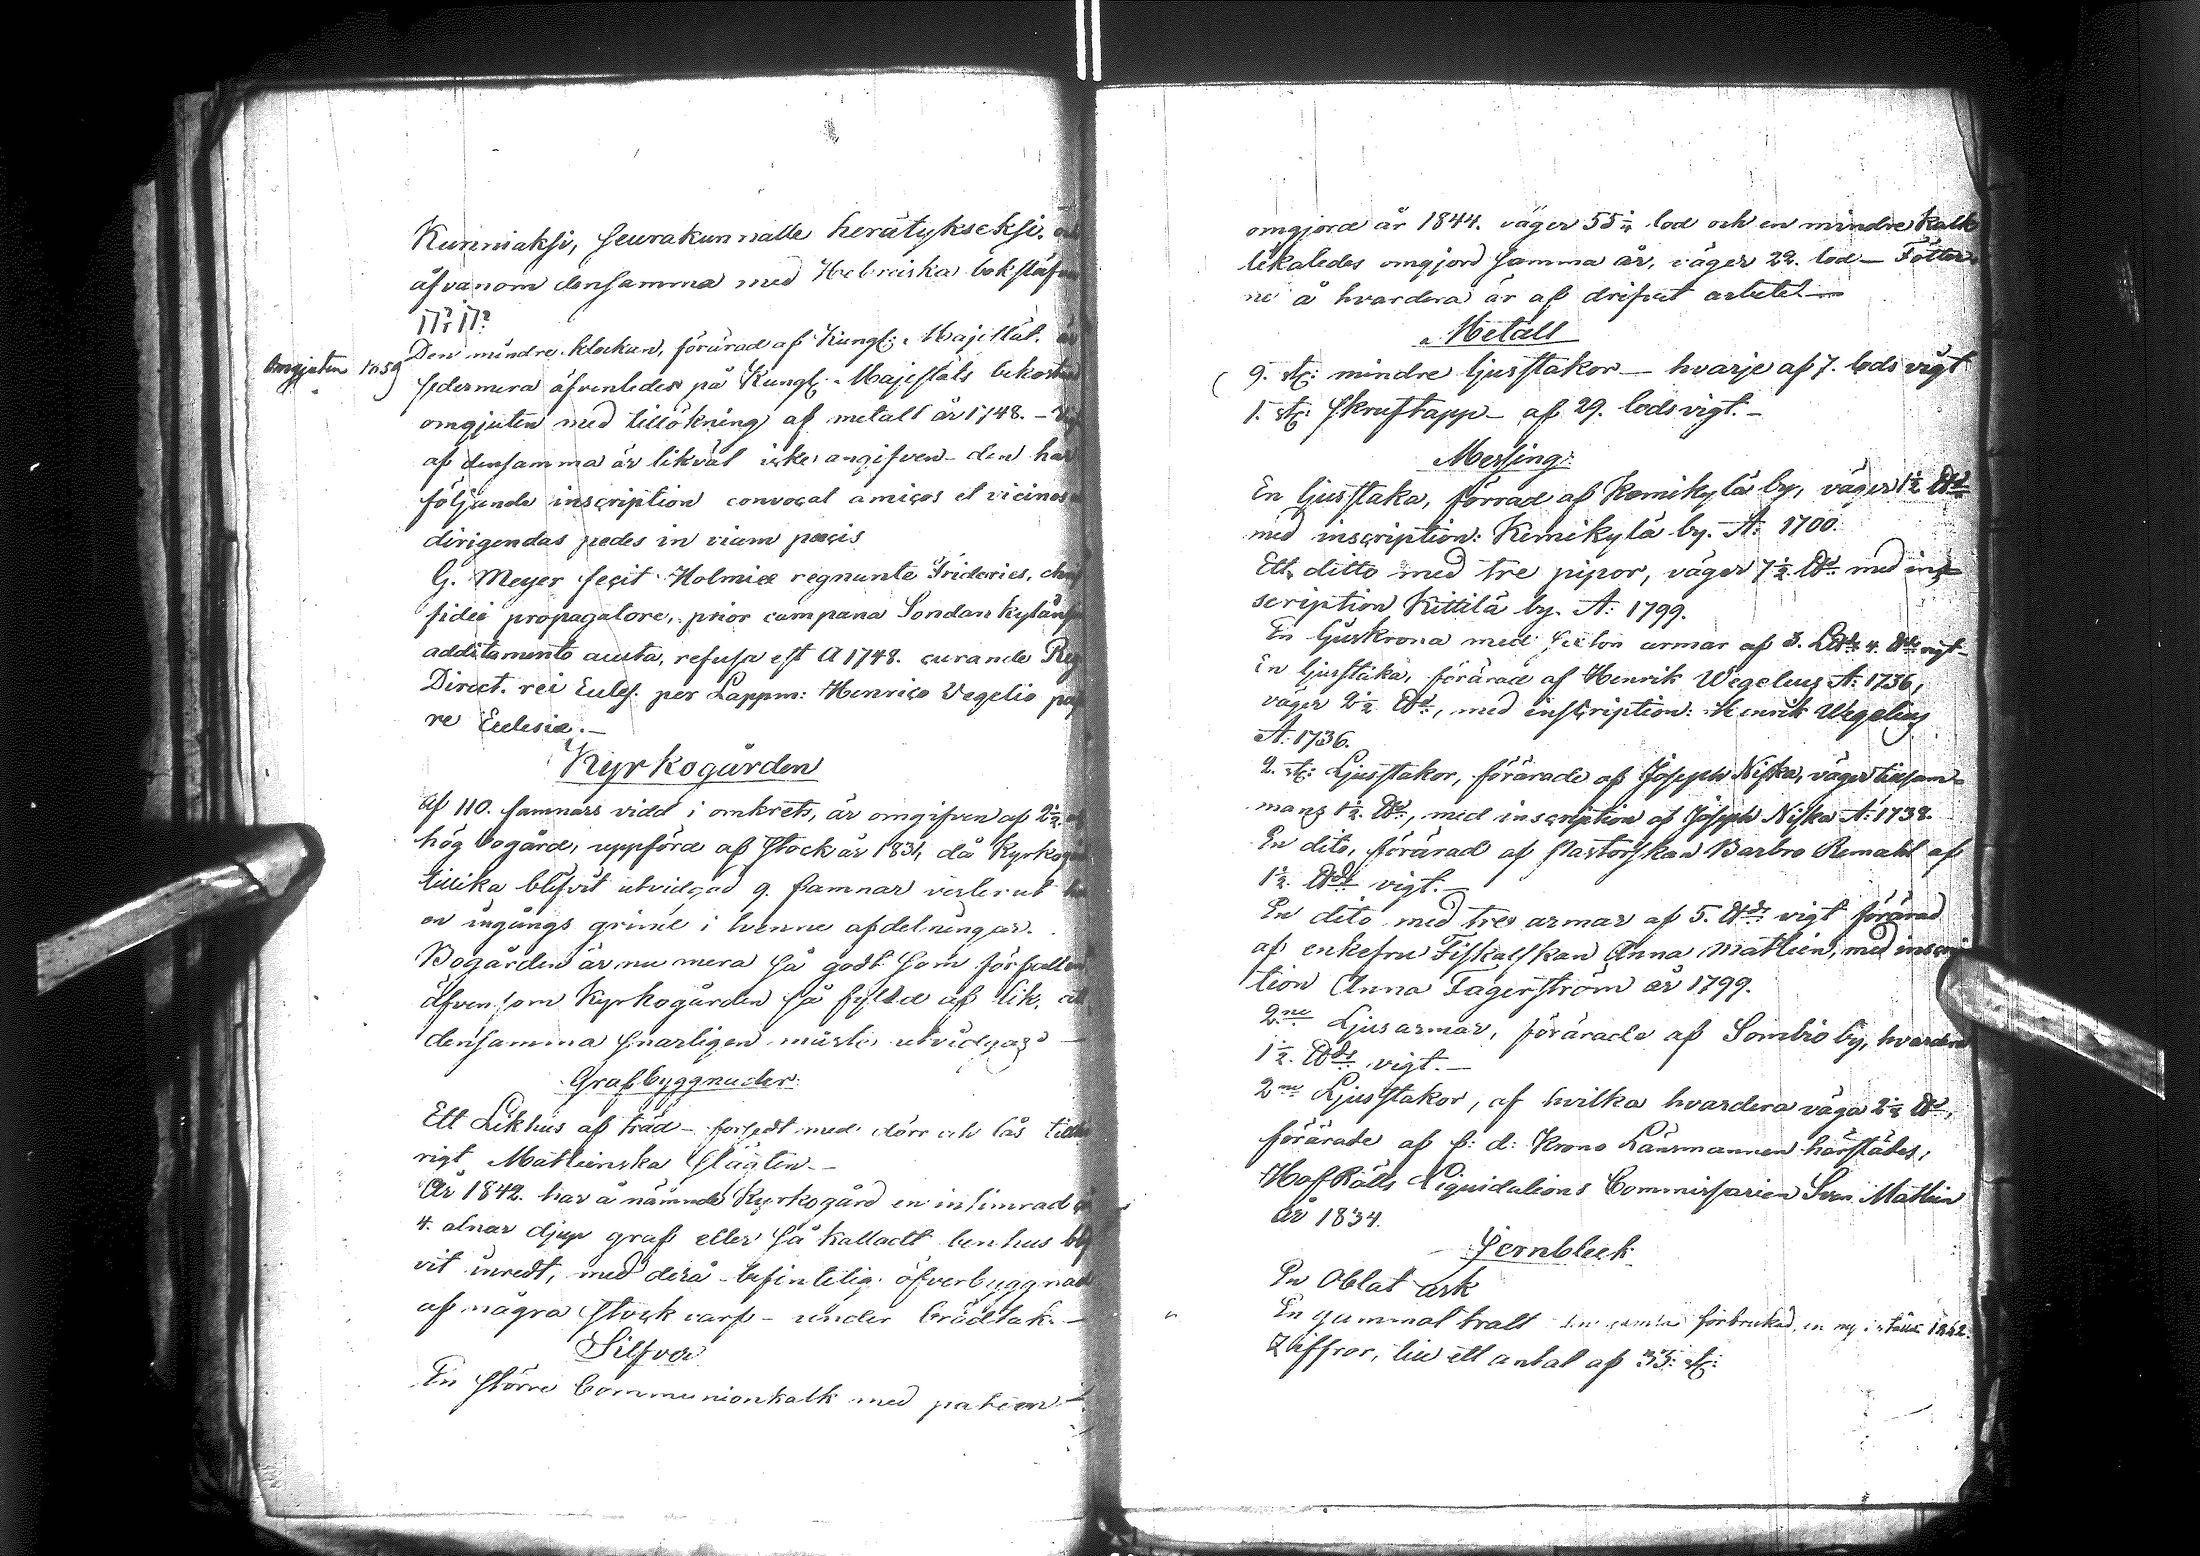 Kunniaksi, seurakunnalle herätykseksi. och
ofvanom densamma med Hebreiska bokstäfver
יְהוָה
Den mindre klockan, förärad af Kungl: Majestät, är
Omgjuten 1859
sedermera äfvenledes på Kungl. Majestäts bekostnad
omgjuten med tillökning af metall år 1748. –
af densamma är likväl icke angifven – den har
följande inscription convocat amicos et vicinos
dirigendas pedes in viam pacis
G. Meyer fecit Holmiæ regnante Frideric,
fidei propagatore, prior campana Sondankyläns
additamento aucta, refusa est A 1748. curande Reg
Direct. rei Eccles. per Lappm: Henrico Vegelio pas
re Eclesiæ. –
Kyrkogården
af 110. famnars vidd i omkrets, är omgifven af 2½
hög bogård, uppförd af stock år 1831, då Kyrkog
tillika blifvit utvidgad 9. famnar vesterut
en ingångs grind i henne afdelningar.
Bogården är nu mera så godt som förfallen
äfvensom Kyrkogården så fylld af lik, att
densamma snarligen måste utvidgas –
Grafbyggnader.
Ett Likhus af träd – försedt med dörr och lås tillhö
rigt Matleinska slägten. –
År 1842. har å nämnde Kyrkogård en intimrad
4. alnar djup graf eller så kalladt benhus blif
vit inredt, med derå befintelig öfverbyggnad
af några stockvarf – under brädtak. –
Silfver
En större Communionkalk med paten –
omgjord år 1844. väger 55¼ lod och en mindre kalk
likaledes omgjord samma år, väger 22. lod – Fötter
ne å hvardera är af drifvet arbete. –
Metall
9. st: mindre ljusstakor – hvarje af 7. lods vigt
1. st: skruftapp – af 29. lods vigt. –
Messing:
En ljusstaka, förärad af Kemikylä by, väger 1½ ℔
med inscription: Kemikylä by. A: 1700.
Ett ditto med tre pipor, väger 7½ ℔ med in
scription Kittilä by. A: 1799.
En ljuskrona med sexton armar af 3. L℔ 4. ℔ vigt –
En ljusstaka, förärad af Henrik Wegelius A: 1736,
väger 2½ ℔, med inscription: Henrik Wegelius
A: 1736.
2. st: Ljusstakor, förärade af Joseph Niska, väger tilsam=
mans 1½ ℔, med inscription af Joseph Niska A: 1738.
En dito, förärad af Pastorskan Barbro Remahl af
1½. ℔ vigt. –
En dito med tre armar af 5. ℔ vigt förärad
af enkefru Fiskalskan Anna Matlein, med inscrip
tion Anna Fagerström år 1799.
2ne Ljusarmar, förärade af Sombio by, hvardera
1½. ℔ vigt. –
2ne Ljusstakor, af hvilka hvardera väga 2½ ℔,
förärade af f: d: Krono Länsmannen härstädes,
HofRätts Liquidations Commissarien Sven Matlein
år 1834.
Jernbleck
En Oblat ask
En gammal tratt den gamla förbrukad, en ny i stället 1852.
Ziffror, till ett antal af 33: st: